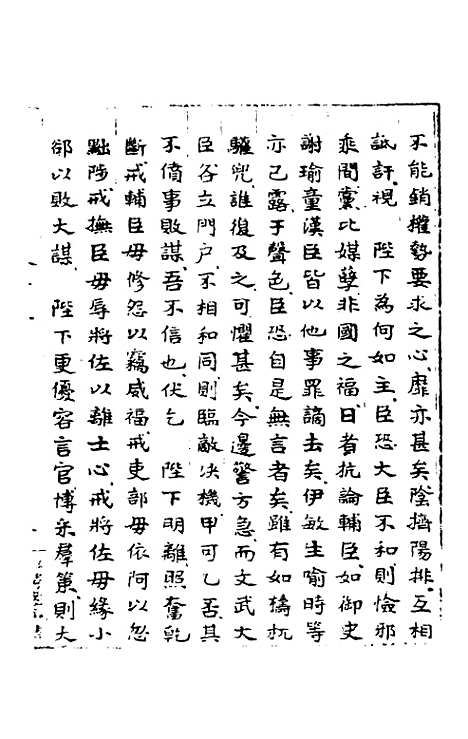 不能銷攉勢要求之心靡亦甚矣陰擠陽排互相
詆訐視 陛下為何如主臣恐大臣不和則憸邪
乘間黨比媒孽非國之福日者抗論輔臣如御史
謝瑜童漢臣皆以他事罪謫去矣伊敏生喻時等
亦已露于聲色臣恐自是無言者矣雖有如檮杌
驩兜誰復及之可懼甚矣今邊警方急而文武大
臣各立門户不相和同則臨敵决機甲可乙否其
不僨事敗謀吾不信也伏乞 陛下明離照奮乾
斷戒輔臣毋修怨以竊威福戒吏部毋依阿以忽
黜陟戒撫臣毋辱將佐以離士心戒將佐毋緣小
郤以敗大謀 陛下更優容言官博采羣策則大